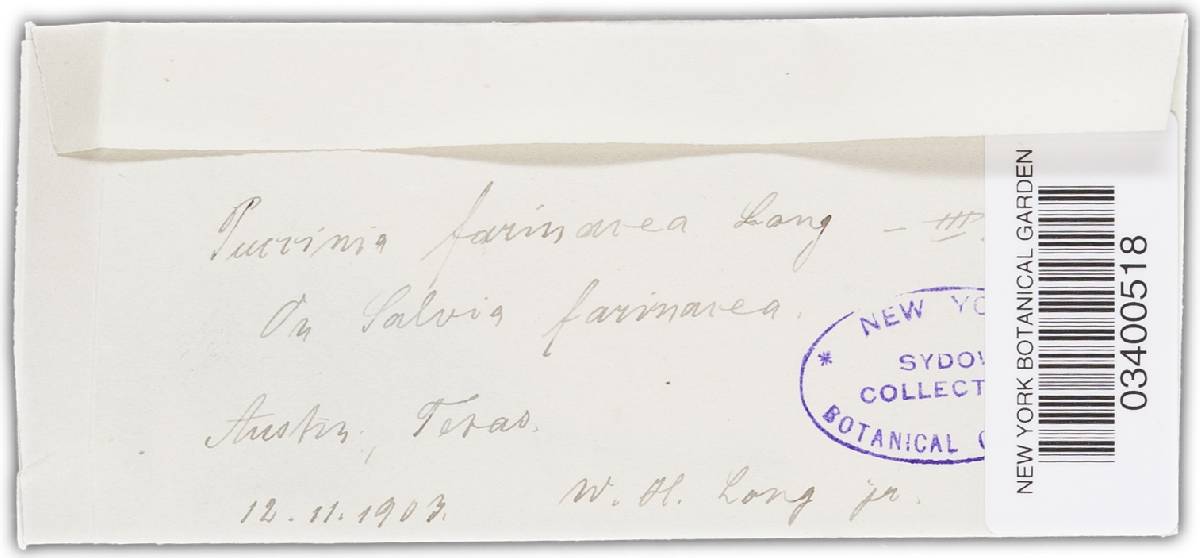 Puccinia farinacea Long – III.
On Salvia farinacea.
Austin, Texas.
12.11.1903.
W. H. Long jr.
NEW YO
SYDOW
COLLECT
BOTANICAL
NEW YORK BOTANICAL GARDEN
03400518